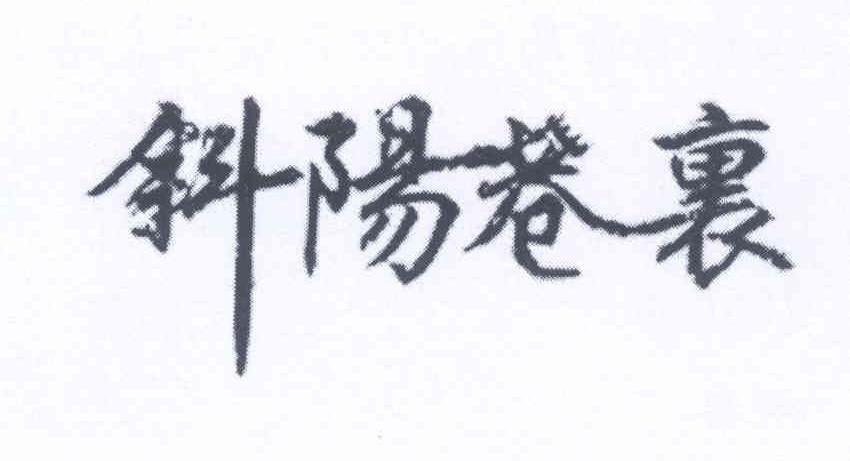 斜陽巷裏